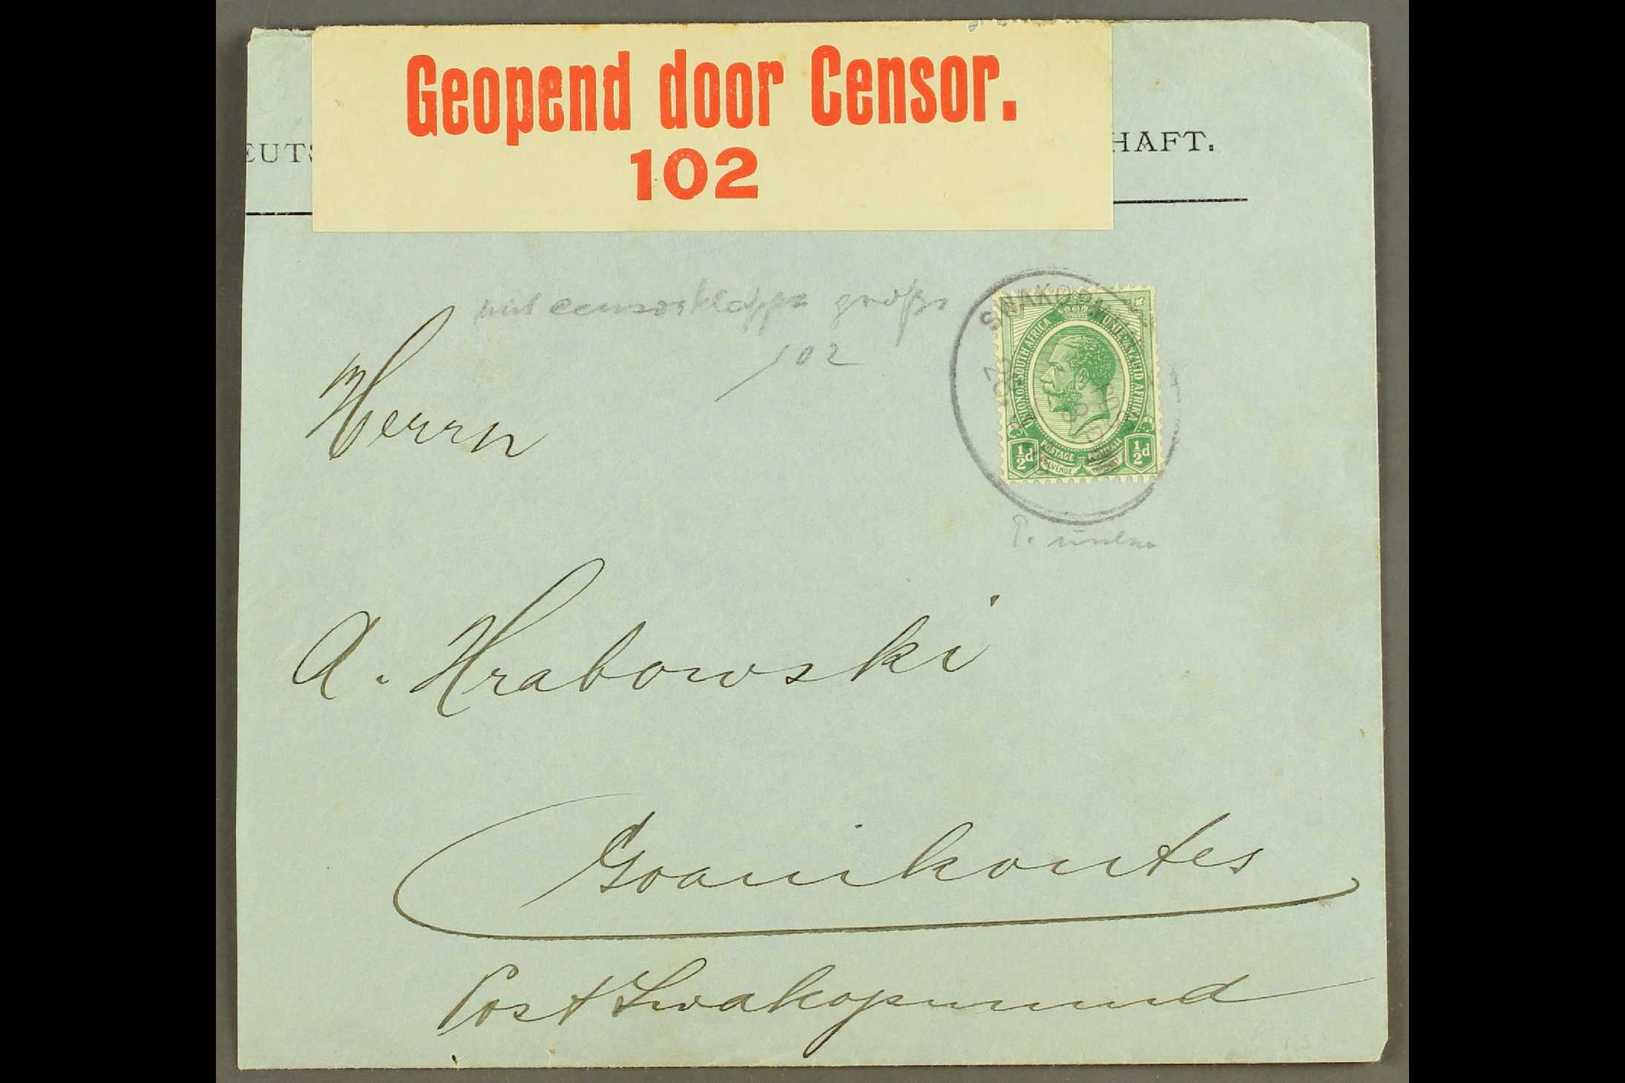 Geopend door Censor.
102
EUTS HAFT.
mit censorklappe große
102
SWAKOPM
UNION OF SOUTH AFRICA UNIE VAN ZUID AFRIKA
POSTAGE
REVENUE
½d ½d
Herrn
A. Hrabowski
Goanikontes
Post Swakopmund